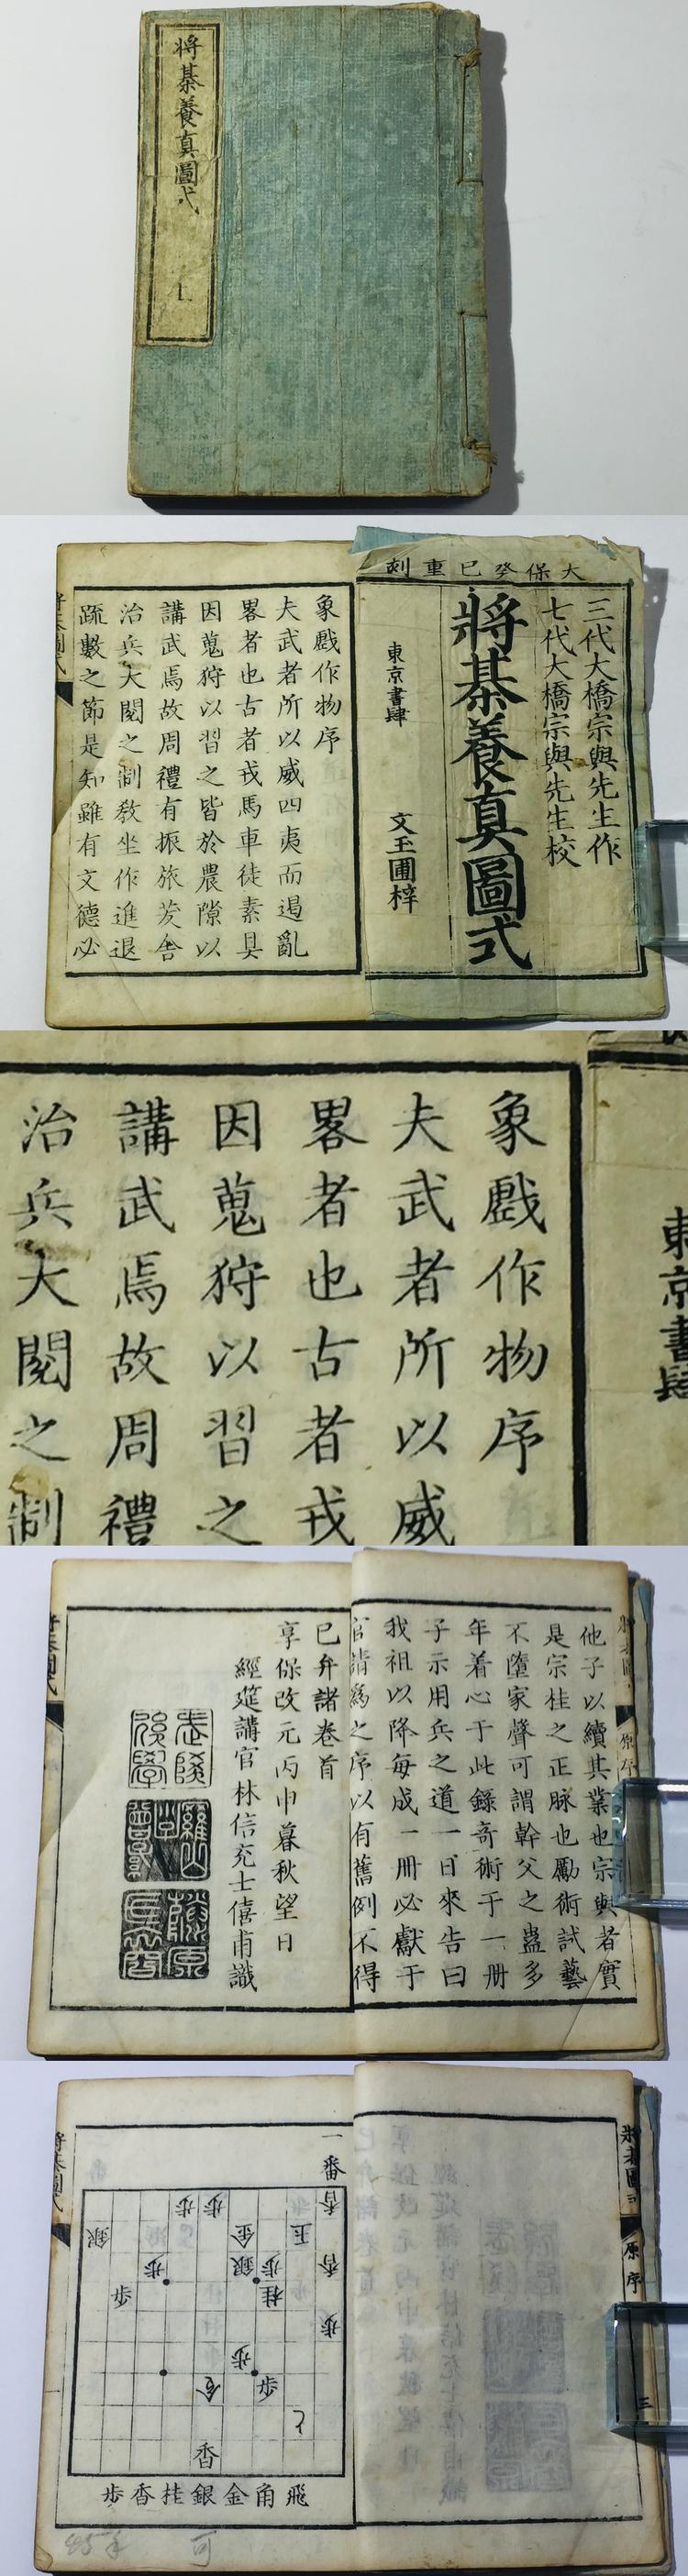 將棊養真圖式
上
大保癸巳重刻
三代大橋宗與先生作
七代大橋宗與先生校
將棊養真圖式
東京書肆
文玉圃梓
象戲作物序
夫武者所以威四夷而遏亂
畧者也古者戎馬車徒素具
因蒐狩以習之皆於農隙以
講武焉故周禮有振旅茇舍
治兵大閱之制教坐作進退
疏數之節是知雖有文德必
東京書肆
象戲作物序
夫武者所以威
畧者也古者戎
因蒐狩以習之
講武焉故周禮
治兵大閱之制
原序
他子以續其業也宗與者實
是宗桂之正脉也勵術試藝
不墮家聲可謂幹父之蠱多
年着心于此錄奇術于一册
子示用兵之道一日來告曰
我祖以降每成一册必獻于
官請爲之序以有舊例不得
已弁諸卷首
享保改元丙申暮秋望日
經筵講官林信充士僖甫識
原序
三
一番
香
歩 歩
銀 金 王
歩 銀 歩 香
歩 桂
歩
歩
金 歩
と
香
飛角金銀桂香歩